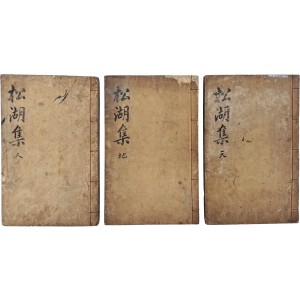 松湖集 人
松湖集 地
松湖集 天